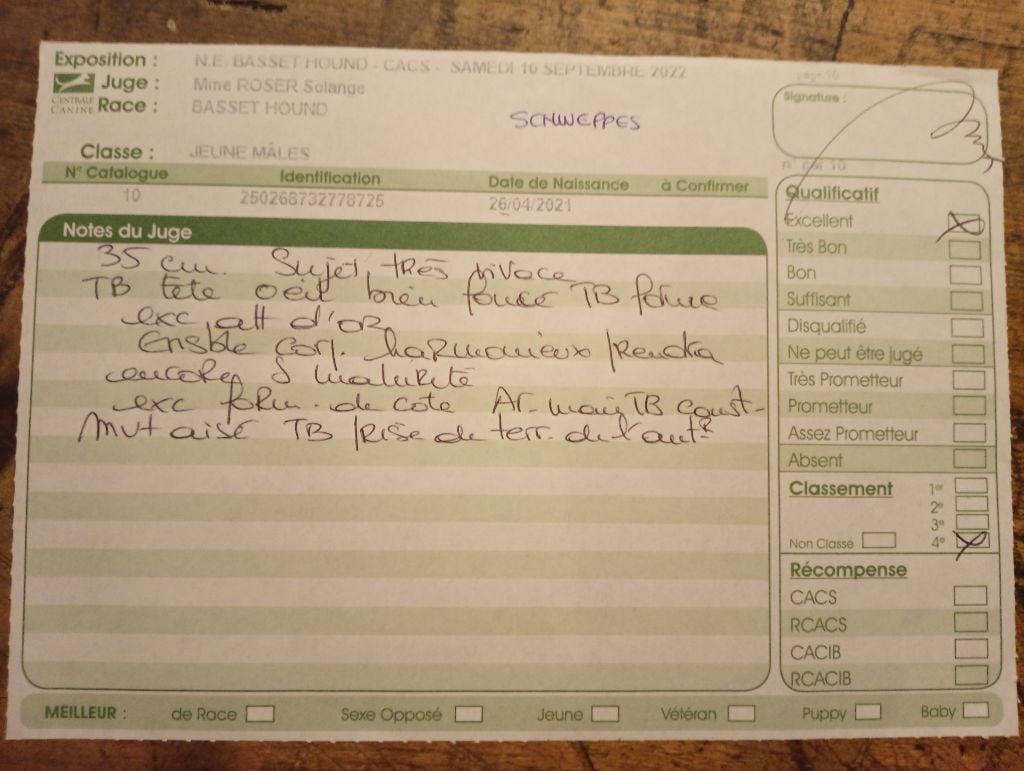 Exposition : N.E. BASSET HOUND - CACS - SAMEDI 10 SEPTEMBRE 2022
page 10
CENTRALE CANINE
Juge : Mme ROSER Solange
Race : BASSET HOUND
SCHWEPPES
Signature :
Classe : JEUNE MÂLES
N° Catalogue Identification Date de Naissance à Confirmer
10 250268732778725 26/04/2021
Notes du Juge
35 cm. Sujet très vivace
TB tête oeil bien foncé TB forme
exc att d'or
Ensble corp. harmonieux prendra
encore maturité
exc form. de côte Ar- mais TB const-
Mvt aisé TB prise de terr. de l'ant
Qualificatif
Excellent
Très Bon
Bon
Suffisant
Disqualifié
Ne peut être jugé
Très Prometteur
Prometteur
Assez Prometteur
Absent
Classement 1er
2e
3e
Non Classé 4e
Récompense
CACS
RCACS
CACIB
RCACIB
MEILLEUR : de Race Sexe Opposé Jeune Vétéran Puppy Baby